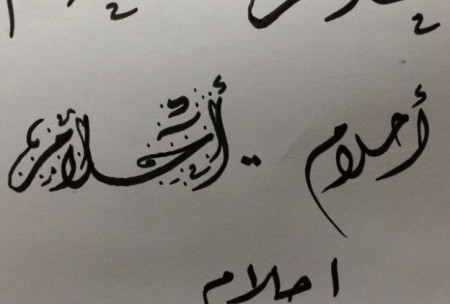 أحلام .. أحلام
احلام